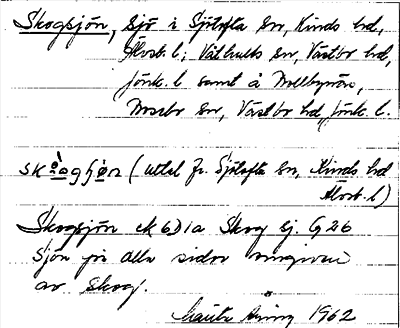 Skogsjön, sjö i Sjötofta sn, Kinds hd,
Älvsb. l; Våthults sn, Västbo hd,
Jönk. l samt å
sn, Västbo hd, Jönk. l.
(uttal fr. Sjötofta sn, Kinds hd
Älvsb. l)
Skogsjön ek 6D1a Skog sj. G26
Sjön på alla sidor omgiven
av skog.
1962